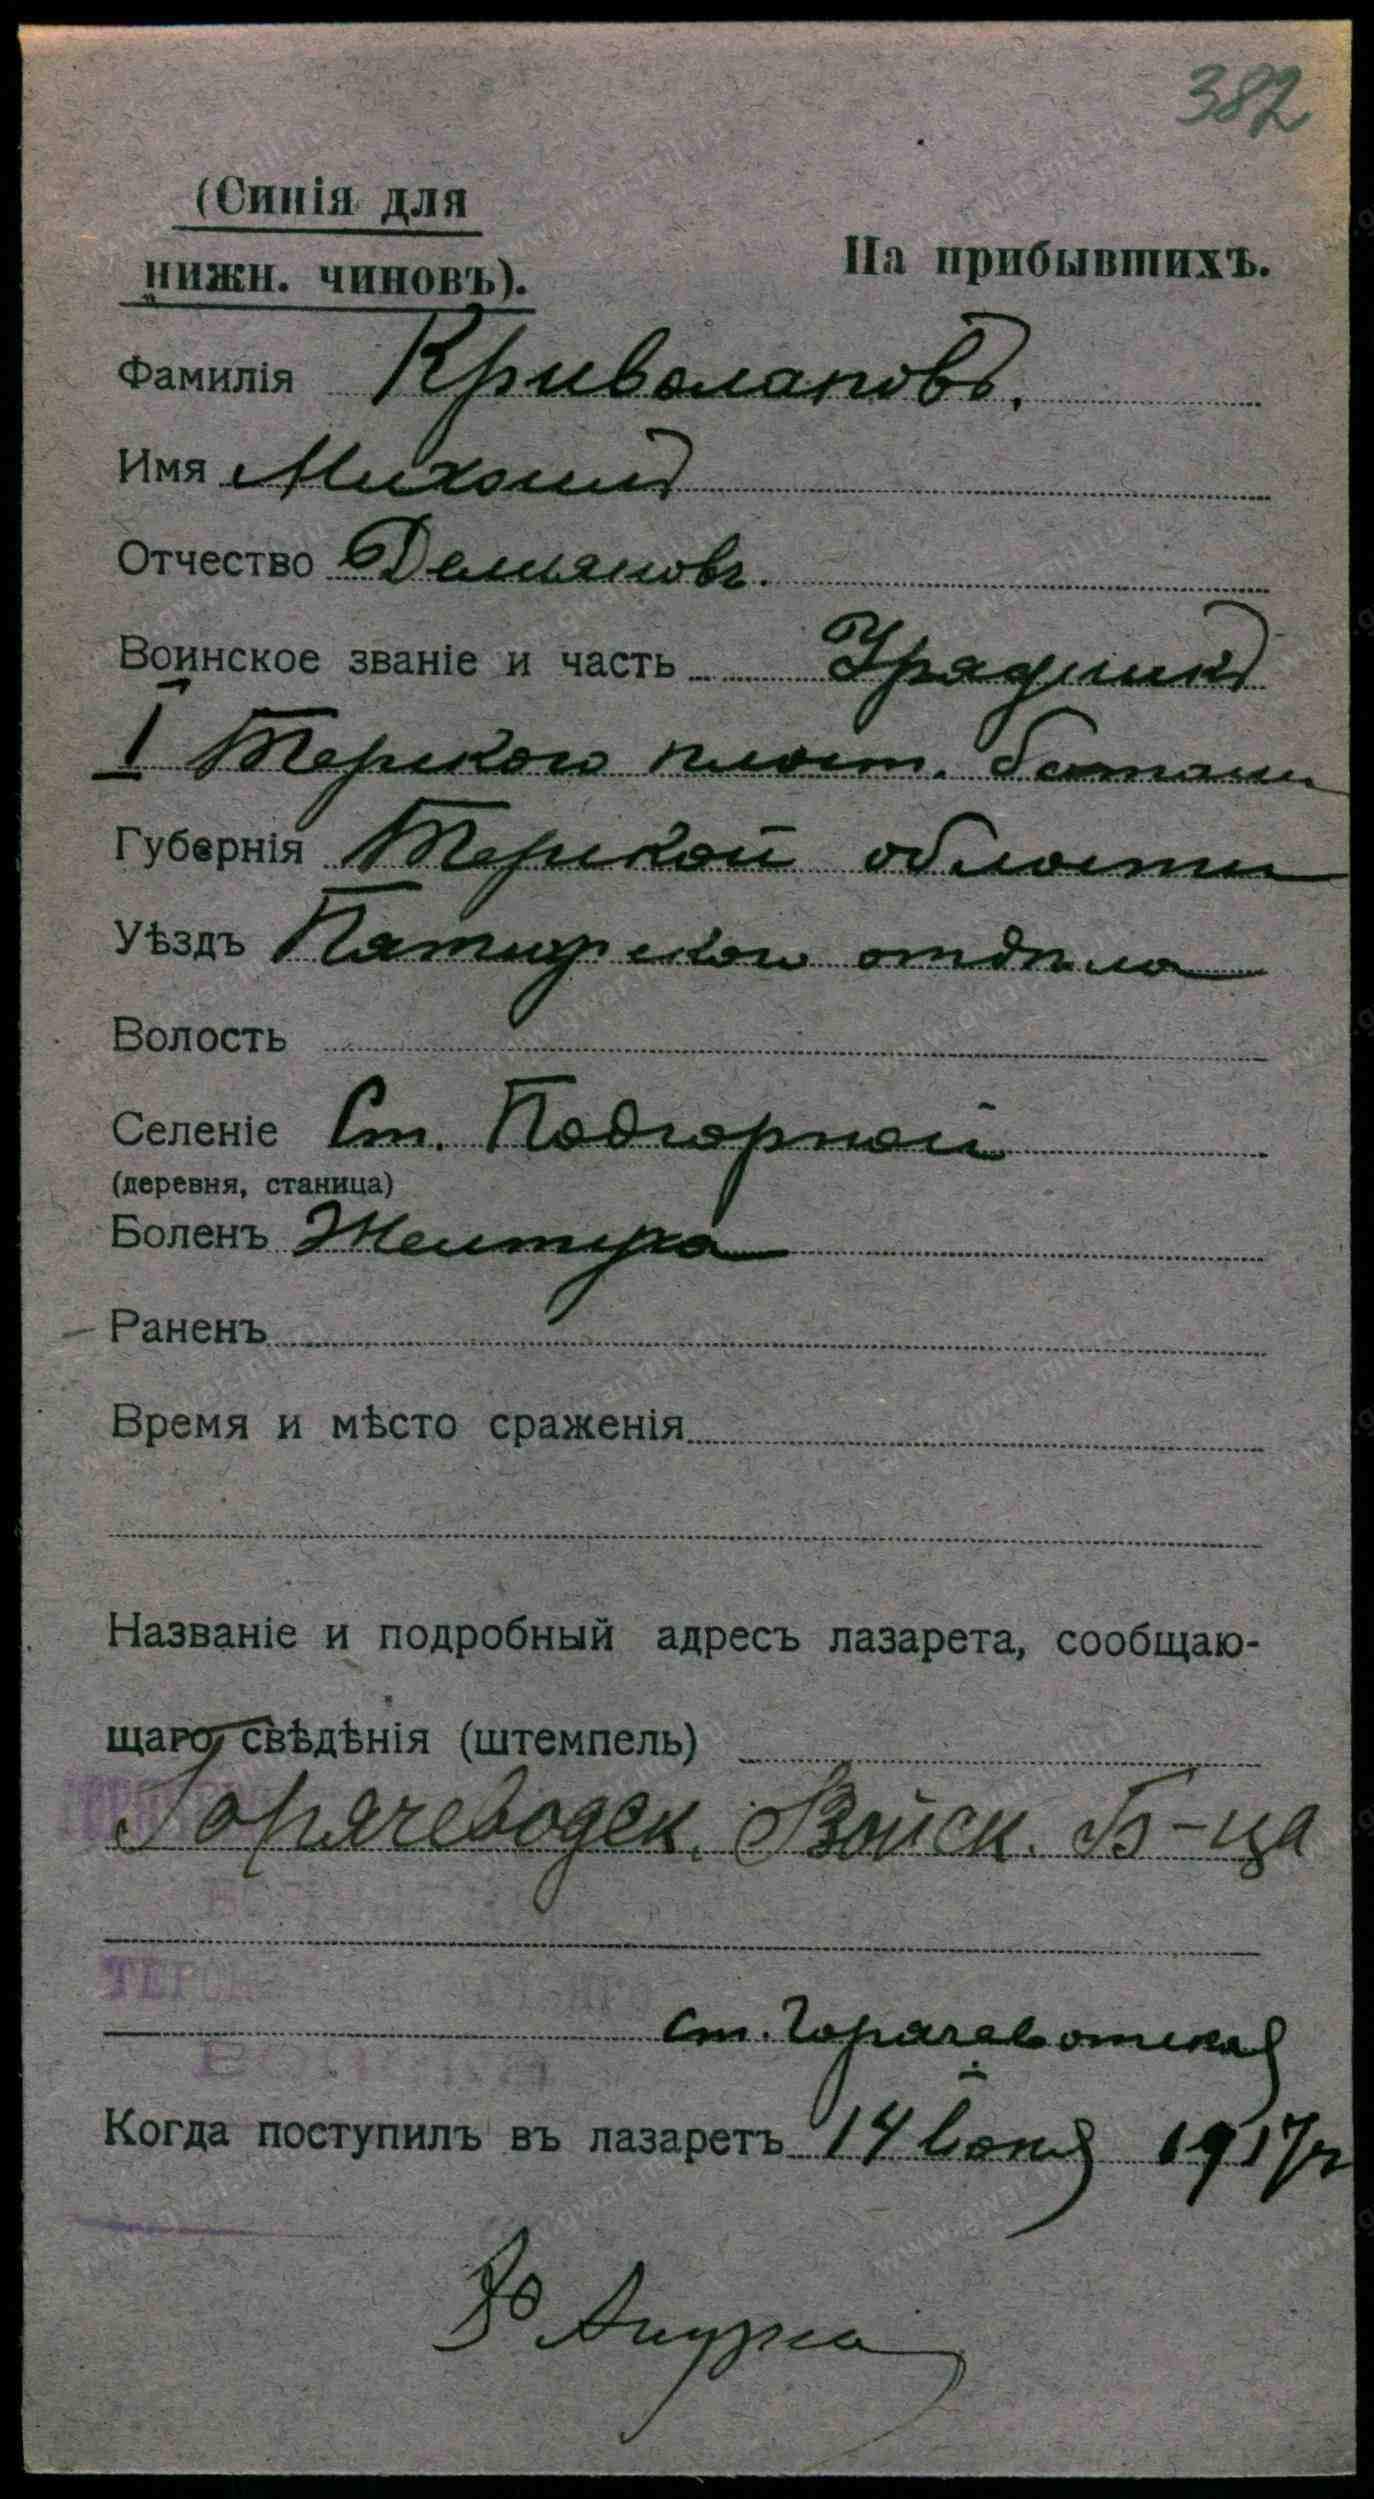 382
(Синія для
нижн. чиновъ).
На прибывшихъ.
Фамилія Криволаповъ.
Имя Михаилъ
Отчество Демьяновъ.
Воинское званіе и часть Урядникъ
I Терского пласт. батальи
Губернія Терской области
Уѣздъ Пятигорского отдѣла
Волость
Селеніе Ст. Подгорной
(деревня, станица)
Боленъ Желтуха
Раненъ
Время и мѣсто сраженія
Названіе и подробный адресъ лазарета, сообщаю-
щаго свѣдѣнія (штемпель)
Горячеводск. Войск. Б-ца
ст. Горячевотская
Когда поступилъ въ лазаретъ 14 Іюня 1917 г